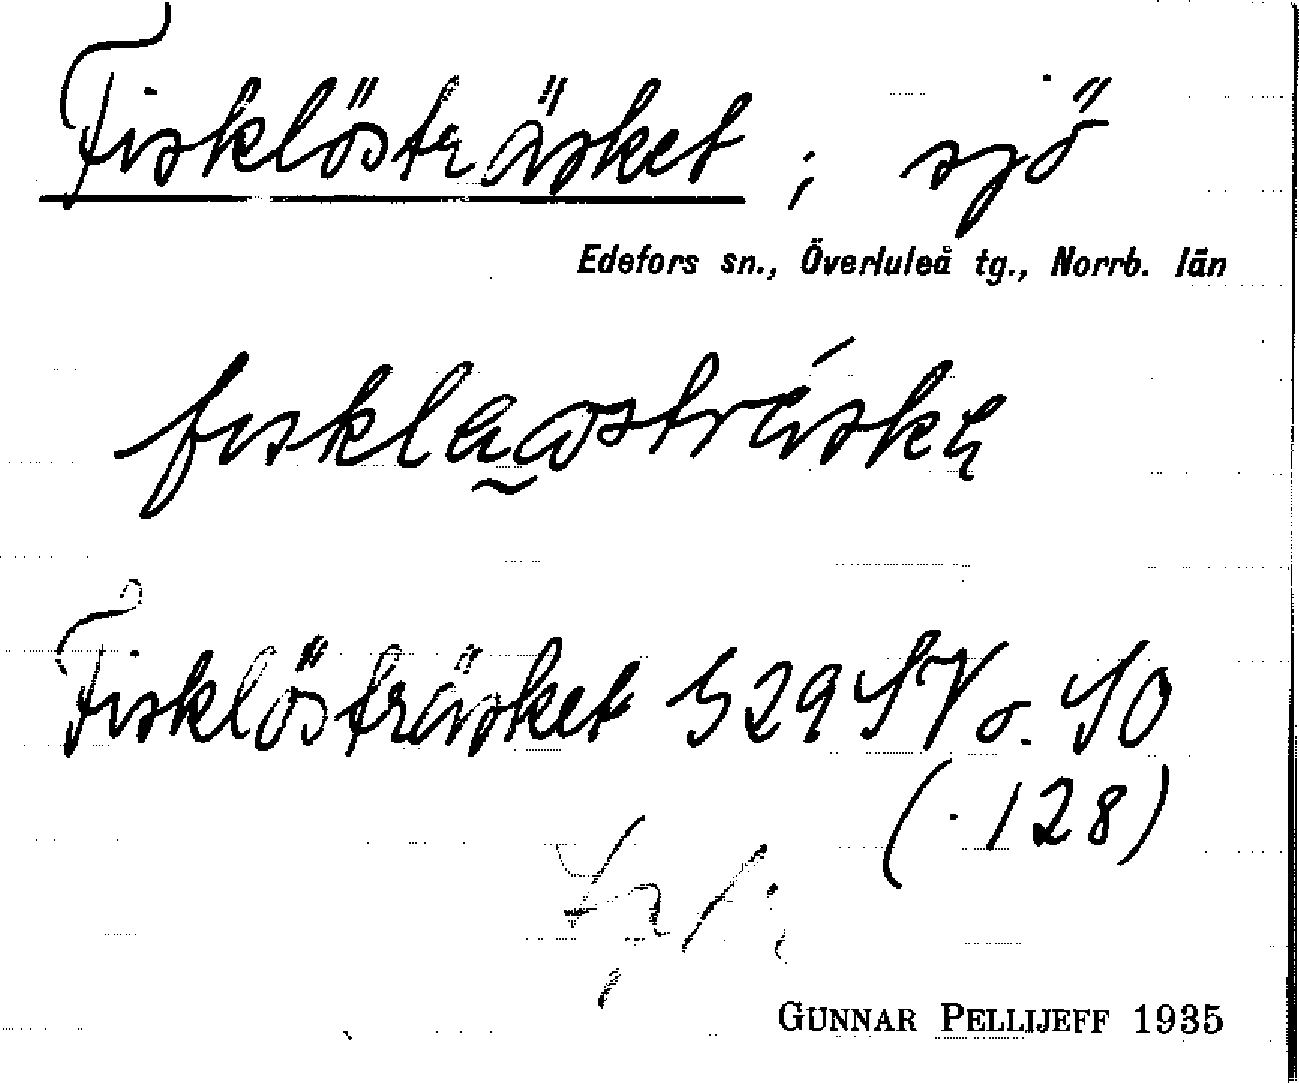 Fisklösträsket ; sjö
Edefors sn., Överluleå tg., Norrb. län
Fisklösträsket 329 SV o. SO
(. 128)
GUNNAR PELLIJEFF 1935